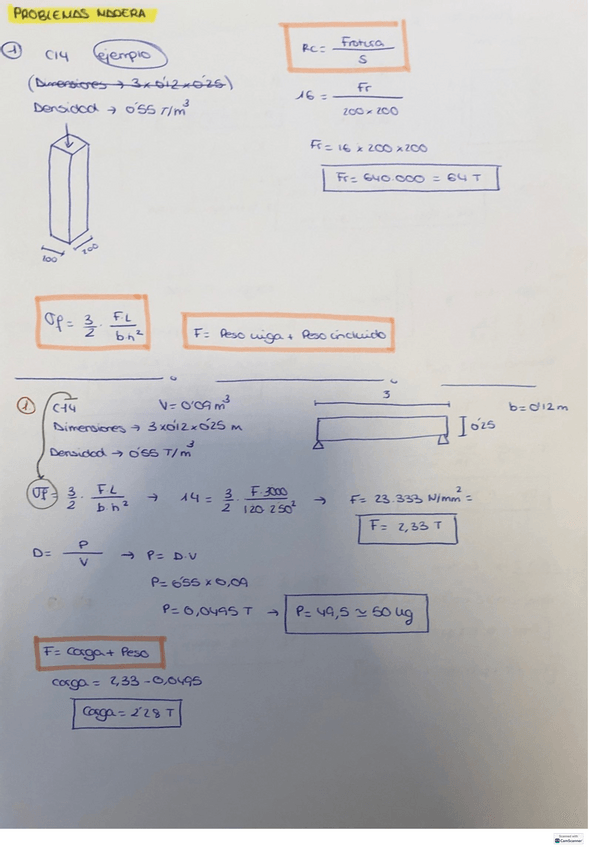 PROBLEMAS MADERA
1 C14 ejemplo
(Dimensiones → 3 x 0'12 x 0'25)
Densidad → 0'55 T/m³
100
200
Rc = Frotura / S
16 = Fr / 200 x 200
Fr = 16 x 200 x 200
Fr = 640.000 = 64 T
σf = 3/2 · F·L / b·h²
F = Peso viga + Peso incluido
1 C14
V = 0'09 m³
Dimensiones → 3x0'12x0'25 m
Densidad → 0'55 T/m³
3
0'25
b = 0'12 m
σf = 3/2 · F·L / b·h² → 14 = 3/2 · F·3000 / 120·250² → F = 23.333 N/mm² =
F = 2,33 T
D = P / V → P = D·V
P = 0'55 x 0,09
P = 0,0495 T → P = 49,5 ≃ 50 kg
F = Carga + Peso
carga = 2,33 - 0,0495
Carga = 2'28 T
Scanned with
CamScanner